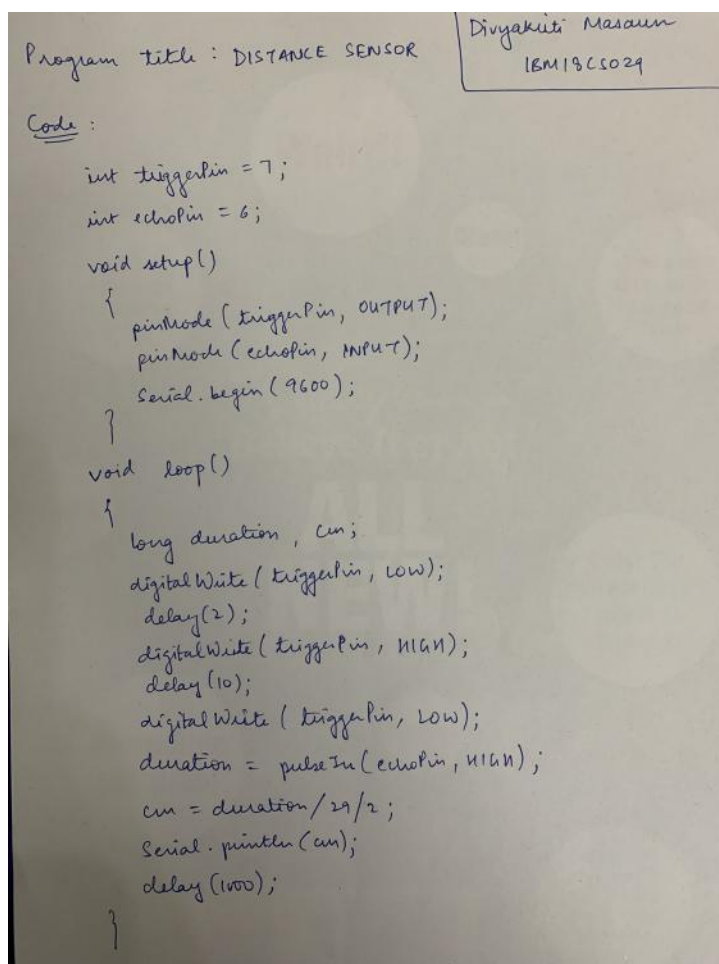 Program title : DISTANCE SENSOR
Divyakirti Masaun
1BM18CS029
Code :
int triggerPin = 7;
int echoPin = 6;
void setup()
{
pinMode (triggerPin, OUTPUT);
pinMode (echoPin, INPUT);
Serial.begin (9600);
}
void loop()
{
long duration, cm;
digitalWrite (triggerPin, LOW);
delay(2);
digitalWrite (triggerPin, HIGH);
delay (10);
digitalWrite (triggerPin, LOW);
duration = pulseIn (echoPin, HIGH);
cm = duration/29/2;
Serial.println (cm);
delay (1000);
}